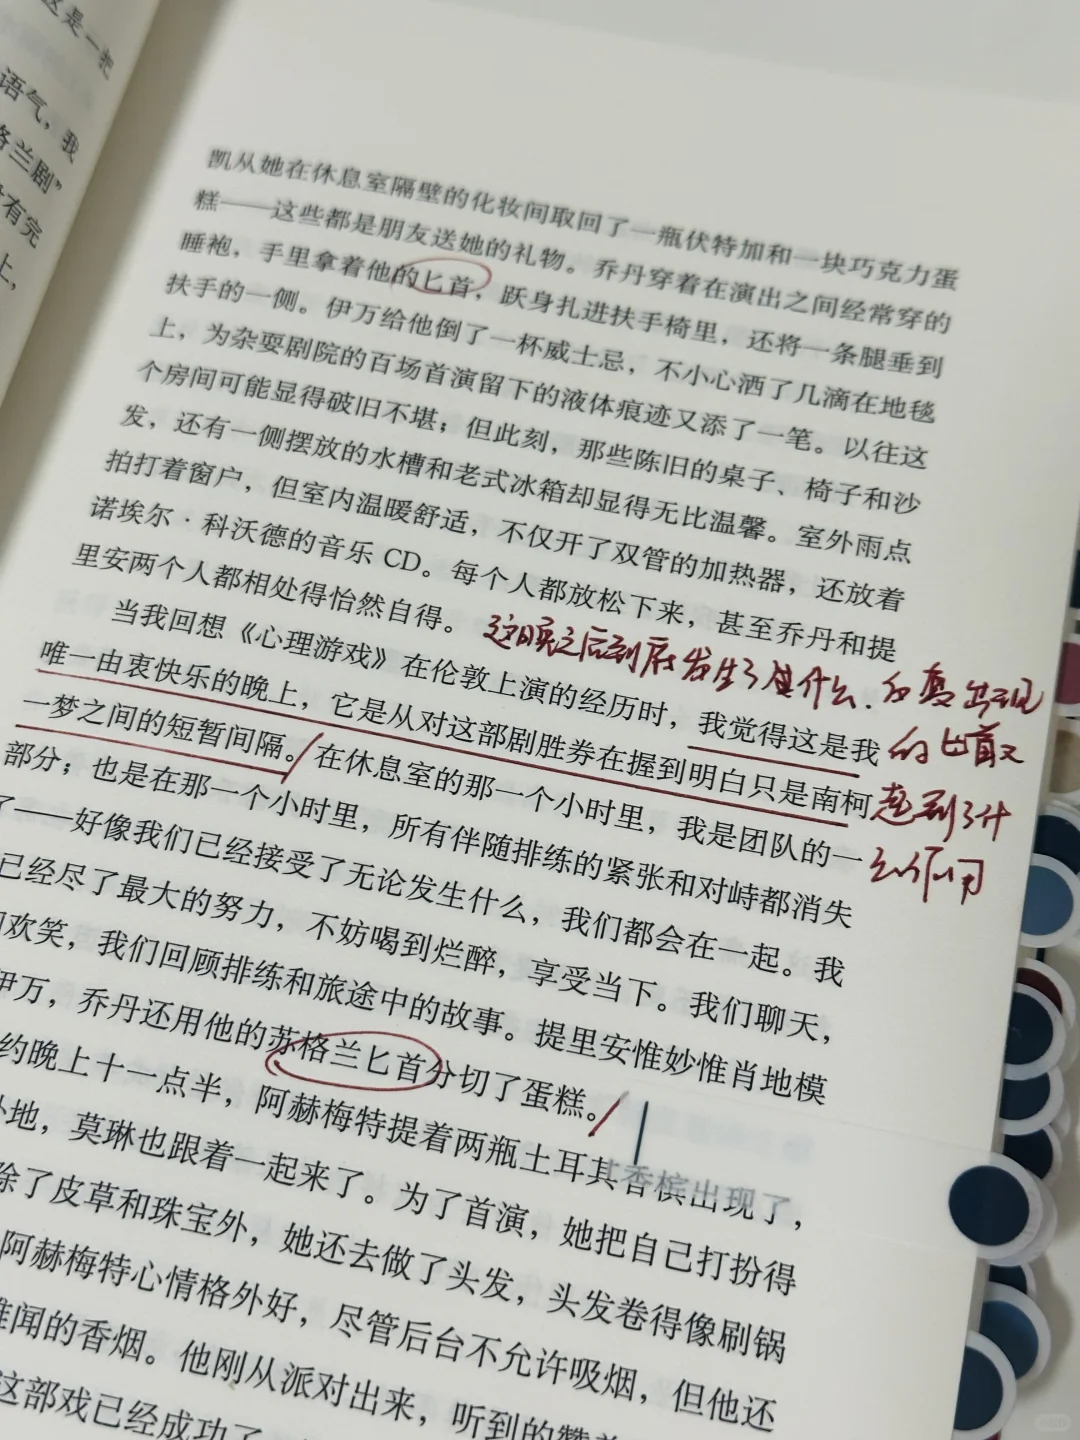 这是一把
语气，我
格兰剧”
有完
上，
凯从她在休息室隔壁的化妆间取回了一瓶伏特加和一块巧克力蛋
糕——这些都是朋友送她的礼物。乔丹穿着在演出之间经常穿的
睡袍，手里拿着他的匕首，跃身扎进扶手椅里，还将一条腿垂到
扶手的一侧。伊万给他倒了一杯威士忌，不小心洒了几滴在地毯
上，为杂耍剧院的百场首演留下的液体痕迹又添了一笔。以往这
个房间可能显得破旧不堪；但此刻，那些陈旧的桌子、椅子和沙
发，还有一侧摆放的水槽和老式冰箱却显得无比温馨。室外雨点
拍打着窗户，但室内温暖舒适，不仅开了双管的加热器，还放着
诺埃尔·科沃德的音乐 CD。每个人都放松下来，甚至乔丹和提
里安两个人都相处得怡然自得。
当我回想《心理游戏》在伦敦上演的经历时，我觉得这是我
唯一由衷快乐的晚上，它是从对这部剧胜券在握到明白只是南柯
一梦之间的短暂间隔。在休息室的那一个小时里，我是团队的一
部分；也是在那一个小时里，所有伴随排练的紧张和对峙都消失
了——好像我们已经接受了无论发生什么，我们都会在一起。我
已经尽了最大的努力，不妨喝到烂醉，享受当下。我们聊天，
欢笑，我们回顾排练和旅途中的故事。提里安惟妙惟肖地模
伊万，乔丹还用他的苏格兰匕首分切了蛋糕。
约晚上十一点半，阿赫梅特提着两瓶土耳其香槟出现了，
地，莫琳也跟着一起来了。为了首演，她把自己打扮得
除了皮草和珠宝外，她还去做了头发，头发卷得像刷锅
阿赫梅特心情格外好，尽管后台不允许吸烟，但他还
难闻的香烟。他刚从派对出来，听到的赞美
这部戏已经成功了
这晚之后到底发生了什么.反复出现
的匕首又
起到了什
么作用